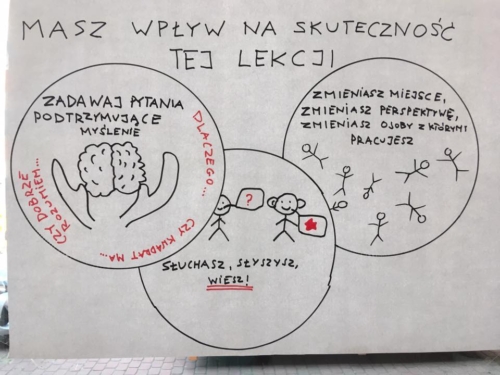 MASZ WPŁYW NA SKUTECZNOŚĆ
TEJ LEKCJI
ZADAWAJ PYTANIA
PODTRZYMUJĄCE
MYŚLENIE
DLACZEGO...
CZY KWADRAT MA...
CZY DOBRZE
ROZUMIEM...
?
SŁUCHASZ, SŁYSZYSZ,
WIESZ!
ZMIENIASZ MIEJSCE,
ZMIENIASZ PERSPEKTYWĘ,
ZMIENIASZ OSOBY Z KTÓRYMI
PRACUJESZ